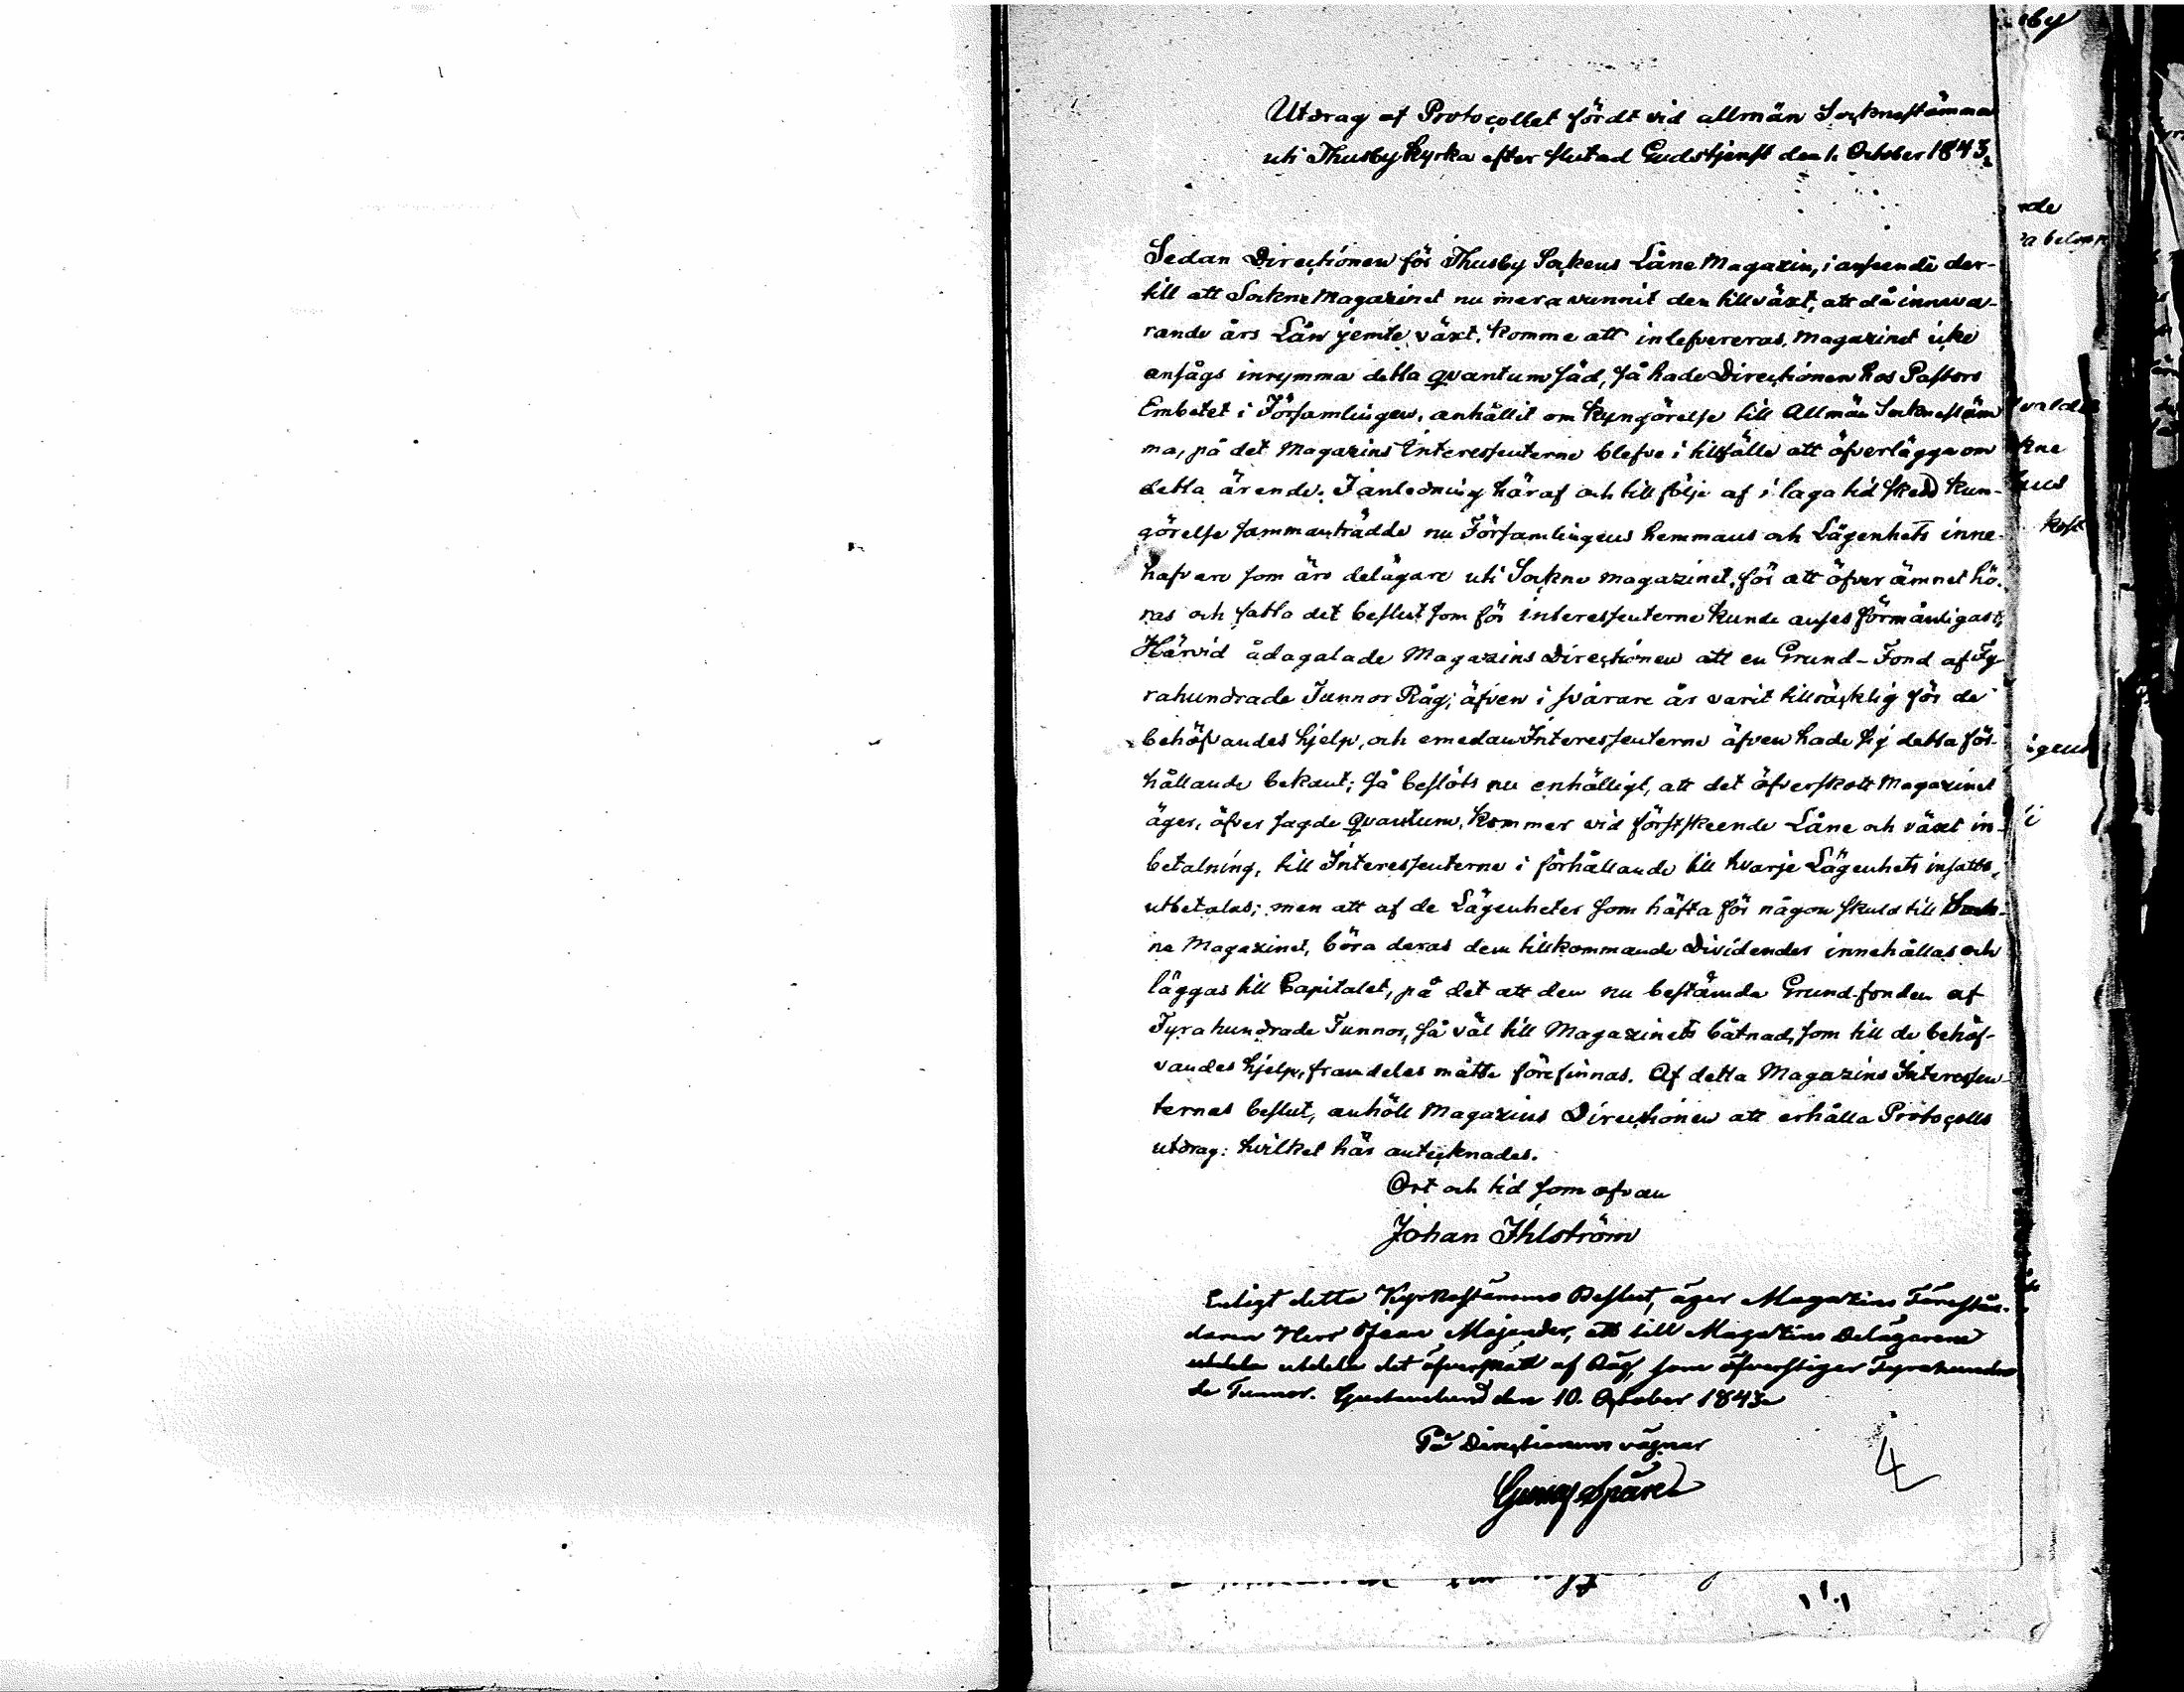 Utdrag af Protocollet fördt vid allmän Socknestämma
uti Thusby Kyrka efter slutad Gudstjenst den 1. October 1843.
Sedan Directionen för Thusby Sockens Låne Magazin, i anseende der-
till att Sockne Magazinet nu mera vunnit den tillväxt, att då inneva-
rande års Lån jemte växt, komme att inlefvereras, Magazinet icke
ansågs inrymma detta quantum säd, så hade Directionen hos Pastors
Embetet i Församlingen, anhållit om kyngörelse till Allmän Socknestäm
ma, på det Magazins Interessenterne blefve i tillfälle att öfverlägga om
detta ärende. I anledning häraf och till följe af i laga tid skedd kun-
görelse sammanträdde nu Församlingens hemmans och Lägenhets inne-
hafvare som äro delägare uti Sockne magazinet, för att öfver ämnet hö-
ras och fatta det beslut som för interessenterne kunde anses förmånligast.
Härvid ådagalade Magazins Directionen att en Grund-Fond af Fy-
rahundrade Tunnor Råg; äfven i svårare år varit tillräcklig för de
behöfvandes hjelp, och emedan Interessenterne äfven hade sig detta för-
hållande bekant; så beslöts nu enhälligt, att det öfverskott Magazinet
äger, öfver sagde Quantum, kommer vid förstskeende Låne och växt in-
betalning, till Interessenterne i förhållande till hvarje Lägenhets insatts,
utbetalas; men att af de Lägenheter som häfta för någon skuld till Sock-
ne Magazinet, böra deras dem tillkommande Dividender innehållas och
läggas till Capitalet, på det att den nu bestämda Grund-fonden af
Fyrahundrade Tunnor, så väl till Magazinets båtnad, som till de behöf-
vandes hjelp, framdeles måtte förefinnas. Af detta Magazins Interessen-
ternes beslut, anhöll Magazins Directionen att erhålla Protocolls
utdrag: hvilket här antecknades.
Ort och tid som ofvan
Johan Ihlström
Enligt detta Kyrkostämmo Beslut, äger Magazins Förestån-
daren Herr Jean Majander, att till Magazins Delägarene
utdela utdela det öfverskott af Råg, som öfverstiger Fyrahundra
de Tunnor. den 10. October 1843
På Directionens vägnar
4